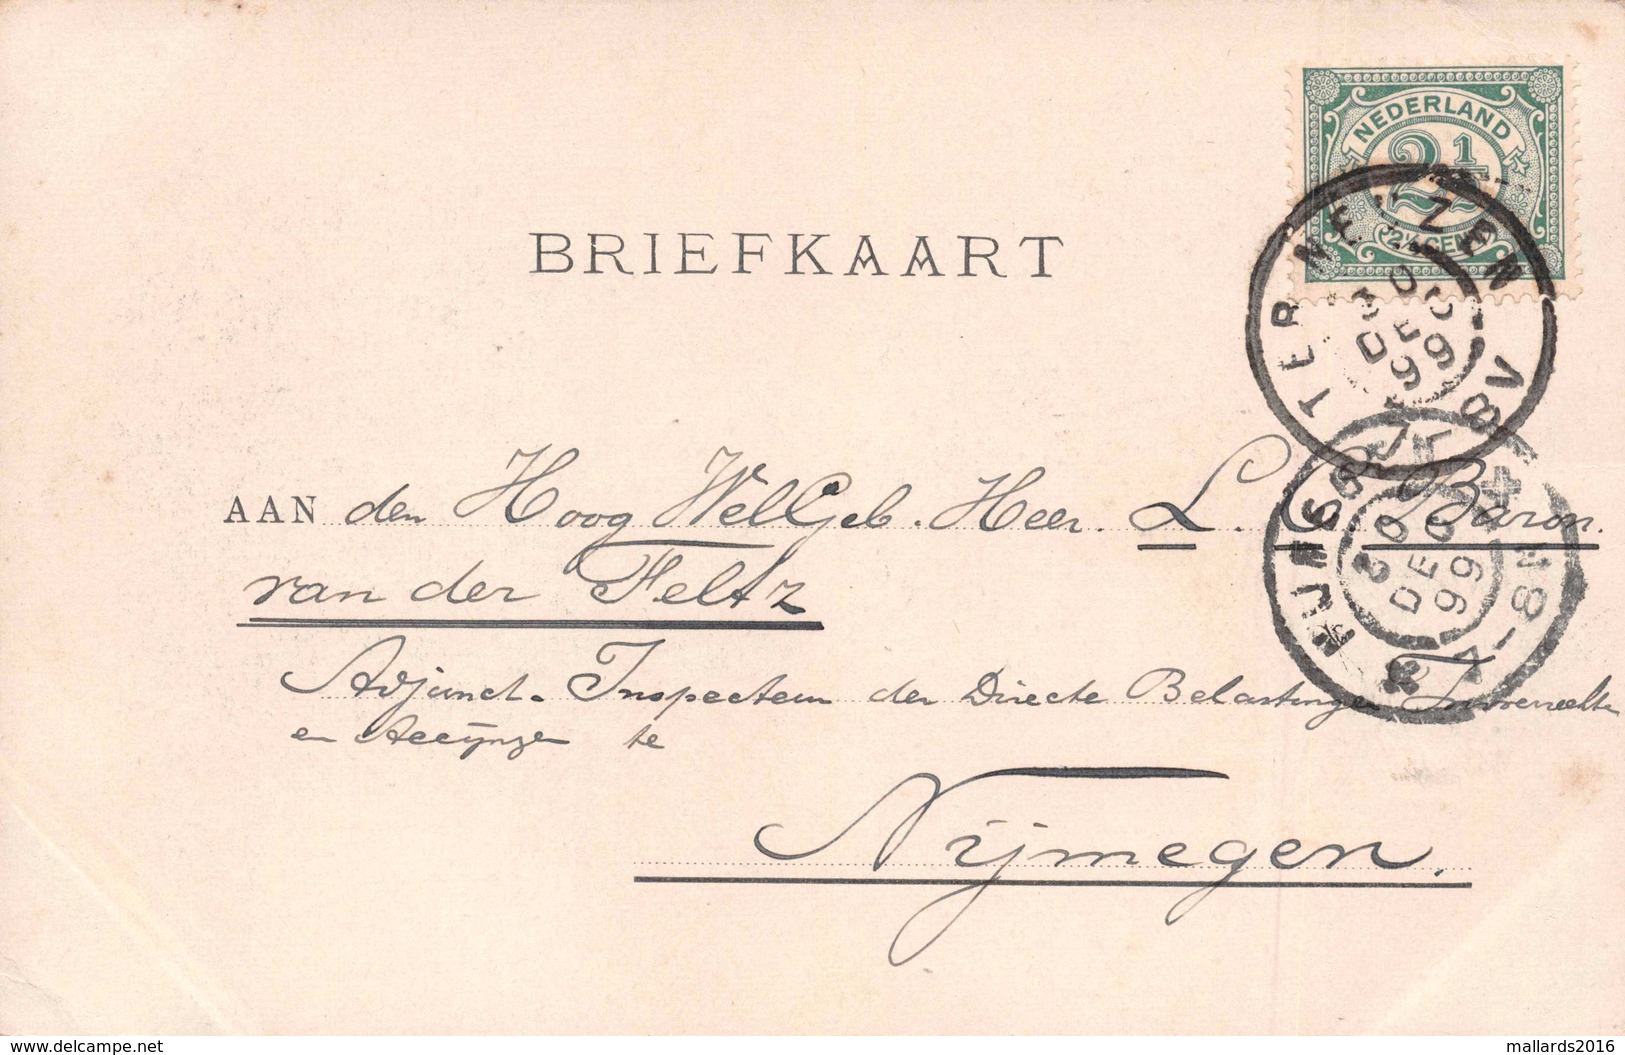 NEDERLAND
2½
2½ CENT
BRIEFKAART
TER NEUZEN
8V
DEC
99
NIJMEGEN
20
DEC
99
7-8N
AAN den Hoog WelGeb. Heer. L. C. Baron.
van der Feltz
Adjunct. Inspecteur der Directe Belastingen Invoerrechten
en Accijnzen te
Nijmegen.
www.delcampe.net
mallards2016